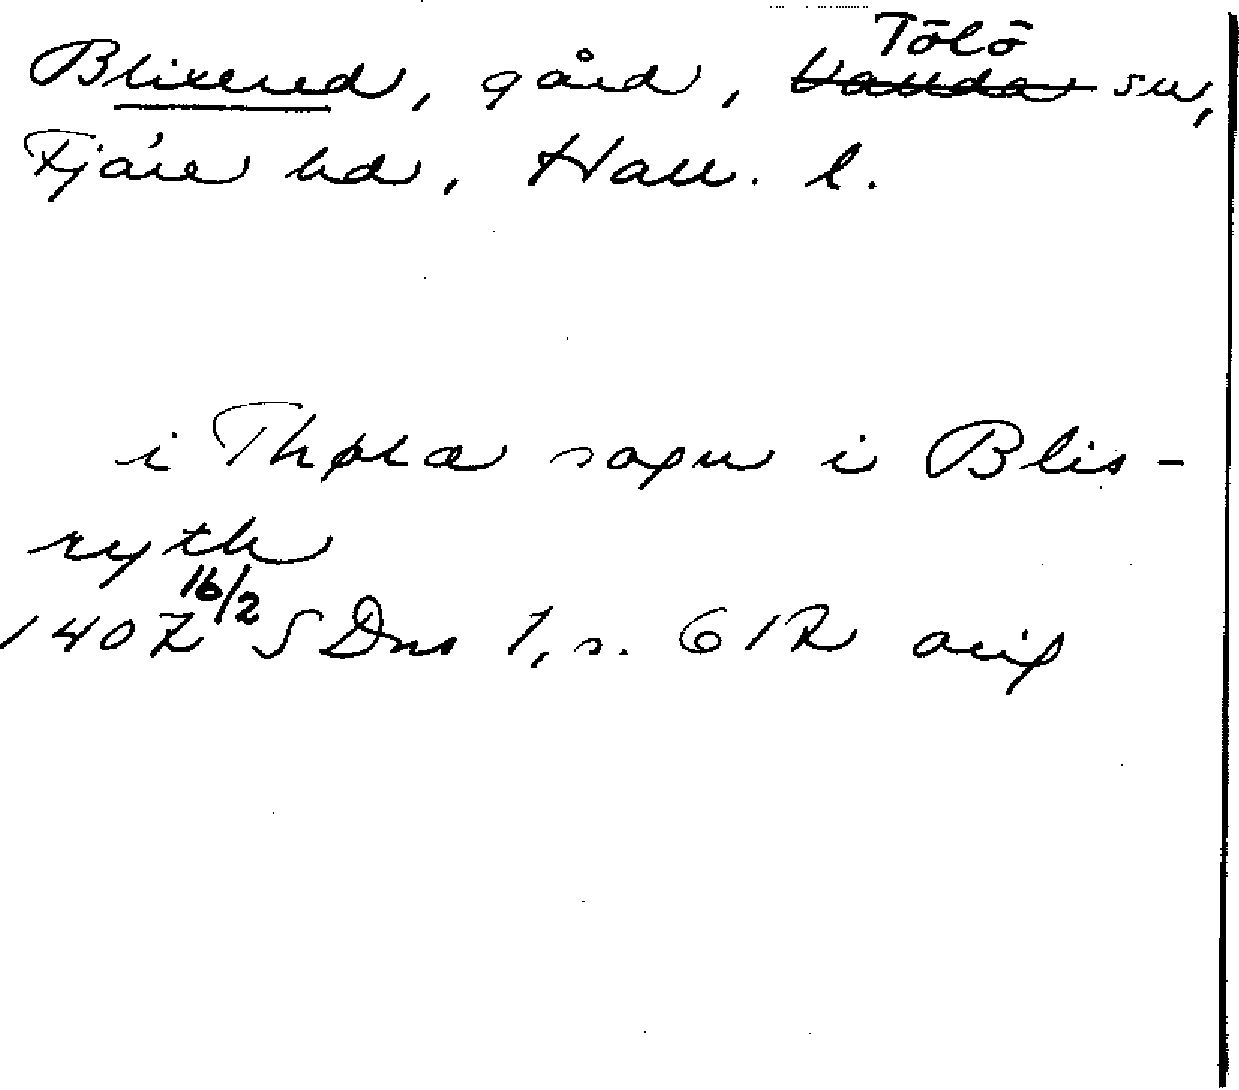 Blixered, gård, Tölö ~~Vallda~~ sn,
Fjäre hd, Hall. l.
i Thøla sogn i Blis-
ryth
1407 16/2 SDns 1, s. 612 orig